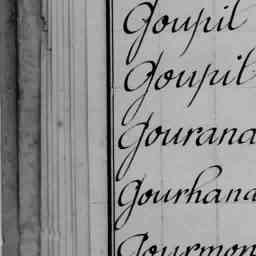 Goupil
Goupil
Gourand
Gourhand
Gourmon